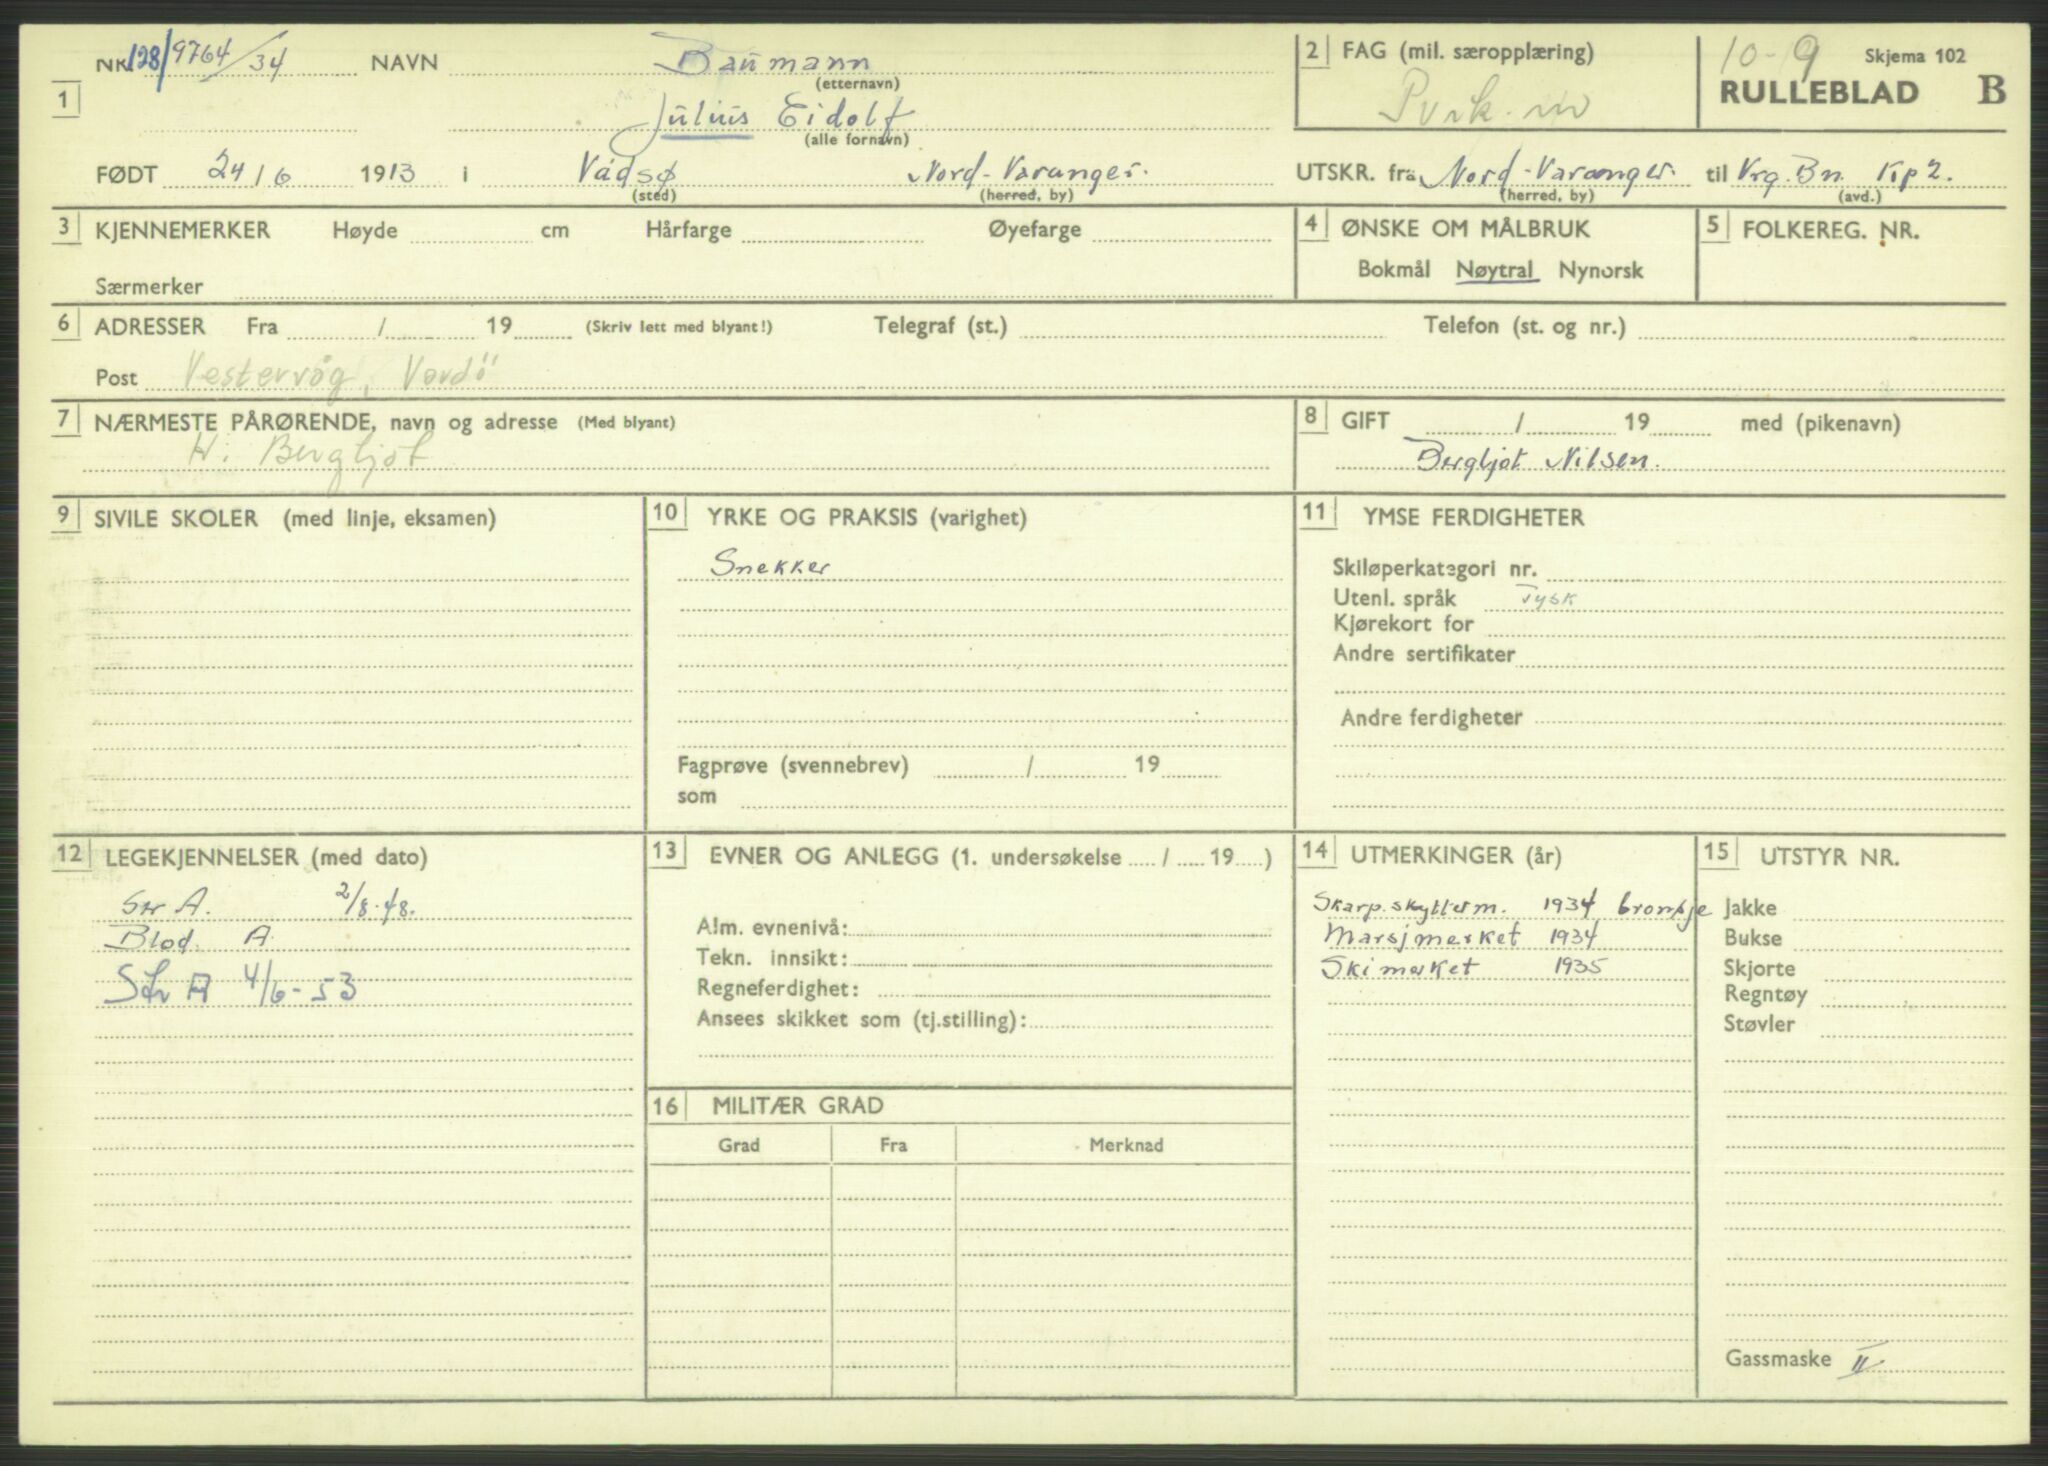 NR. 128/9764/34 NAVN Baumann 2 FAG (mil. særopplæring) 10-9 Skjema 102
(etternavn) RULLEBLAD B
1 Julius Eidolf
(alle fornavn)
FØDT 24/6 1913 i Vadsø Nord-Varanger. UTSKR. fra Nord-Varanger. til Vrg. Bn. Kp 2.
(sted) (herred, by) (herred, by) (avd.)
3 KJENNEMERKER Høyde cm Hårfarge Øyefarge 4 ØNSKE OM MÅLBRUK 5 FOLKEREG. NR.
Bokmål Nøytral Nynorsk
Særmerker
6 ADRESSER Fra / 19 (Skriv lett med blyant!) Telegraf (st.) Telefon (st. og nr.)
Post Vestervåg, Vardö
7 NÆRMESTE PÅRØRENDE, navn og adresse (Med blyant) 8 GIFT / 19 med (pikenavn)
H: Bergljot Bergljot Nilsen.
9 SIVILE SKOLER (med linje, eksamen) 10 YRKE OG PRAKSIS (varighet) 11 YMSE FERDIGHETER
Snekker Skiløperkategori nr.
Utenl. språk Tysk
Kjørekort for
Andre sertifikater
Andre ferdigheter
Fagprøve (svennebrev) / 19
som
12 LEGEKJENNELSER (med dato) 13 EVNER OG ANLEGG (1. undersøkelse / 19 ) 14 UTMERKINGER (år) 15 UTSTYR NR.
Str A. 2/8.48. Skarp.skytterm. 1934 bronsje Jakke
Blod. A Alm. evnenivå: Marsjmerket 1934 Bukse
Str A 4/6-53 Tekn. innsikt: Skimerket 1935 Skjorte
Regneferdighet: Regntøy
Ansees skikket som (tj.stilling): Støvler
16 MILITÆR GRAD
Grad Fra Merknad
Gassmaske II